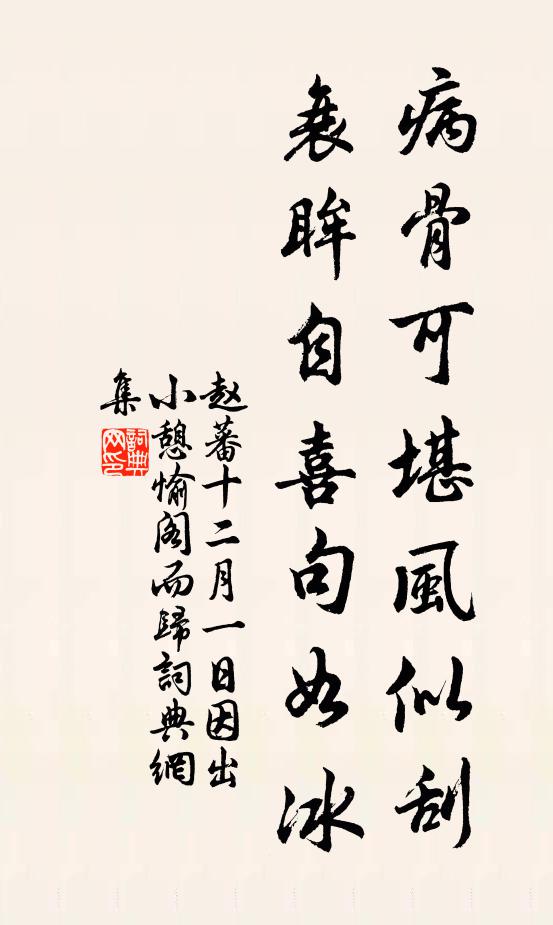 病骨可堪風似刮
衰眸自喜句如冰
赵蕃十二月一日因出
小憩愉阁而歸詞典網
集
詞典
网印